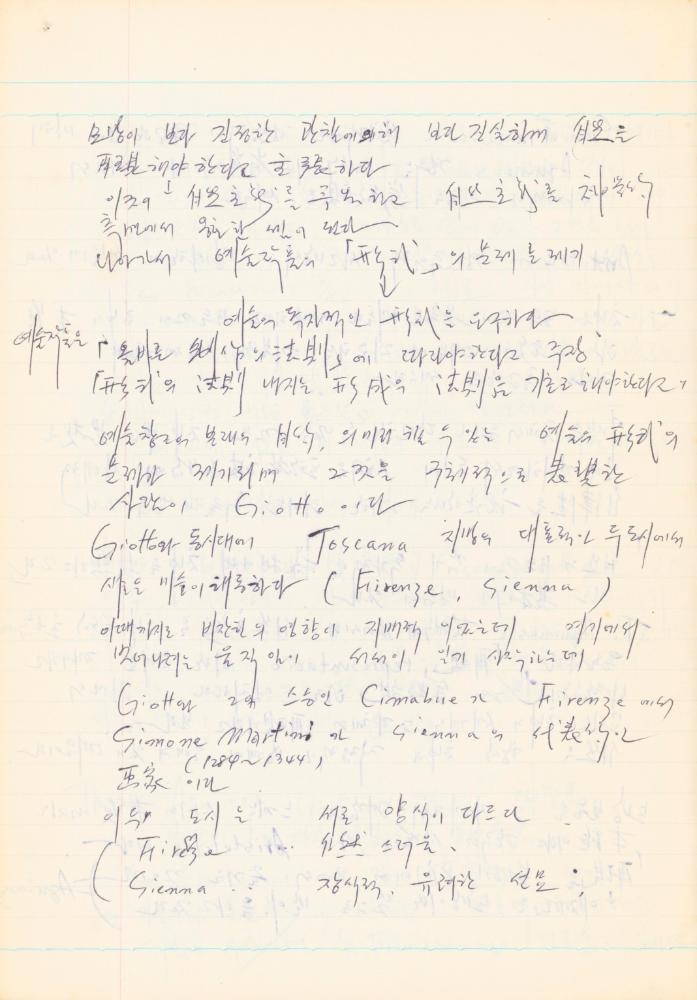 모방이 보다 진정한 관찰에 의해 보다 진실하게 自然을
再現해야 한다고 主要하다
이것이 自然主義를 하고 自然主義를
측면에서 셈이 된다
나아가서 예술작품의 「形式」의 문제를 제기
예술의 독자적인 形式을 요구하다
예술작품은 「올바른 의 法則」에 따라야 한다고 주장,
「形式의 法則」 내지는 形成의 法則을 기초로 해야 한다고,
예술창조의 본래의 의미라 할 수 있는 예술의 形式의
문제가 제기되며 그것을 구체적으로 表現한
사람이 Giotto 이다
Giotto와 동시대에 Toscana 지방의 대표적인 두 도시에서
새로운 미술이 대두하다 (Firenze, Sienna)
이때까지도 비잔틴의 영향이 지배적이었는데 여기에서
벗어나려는 움직임이 서서히 일기 시작하는데
Giotto와 그의 스승인 Cimabue가 Firenze에서
Simone Martini가 Sienna의 代表的인
(1284~1344)
画家이다
이 두 도시는 서로 양식이 다르다
( Firenze ... 自然스러움.
( Sienna ... 장식적, 유려한 선묘.